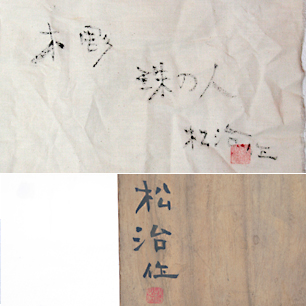 木彫
鉄の人
松治作
松
治
作